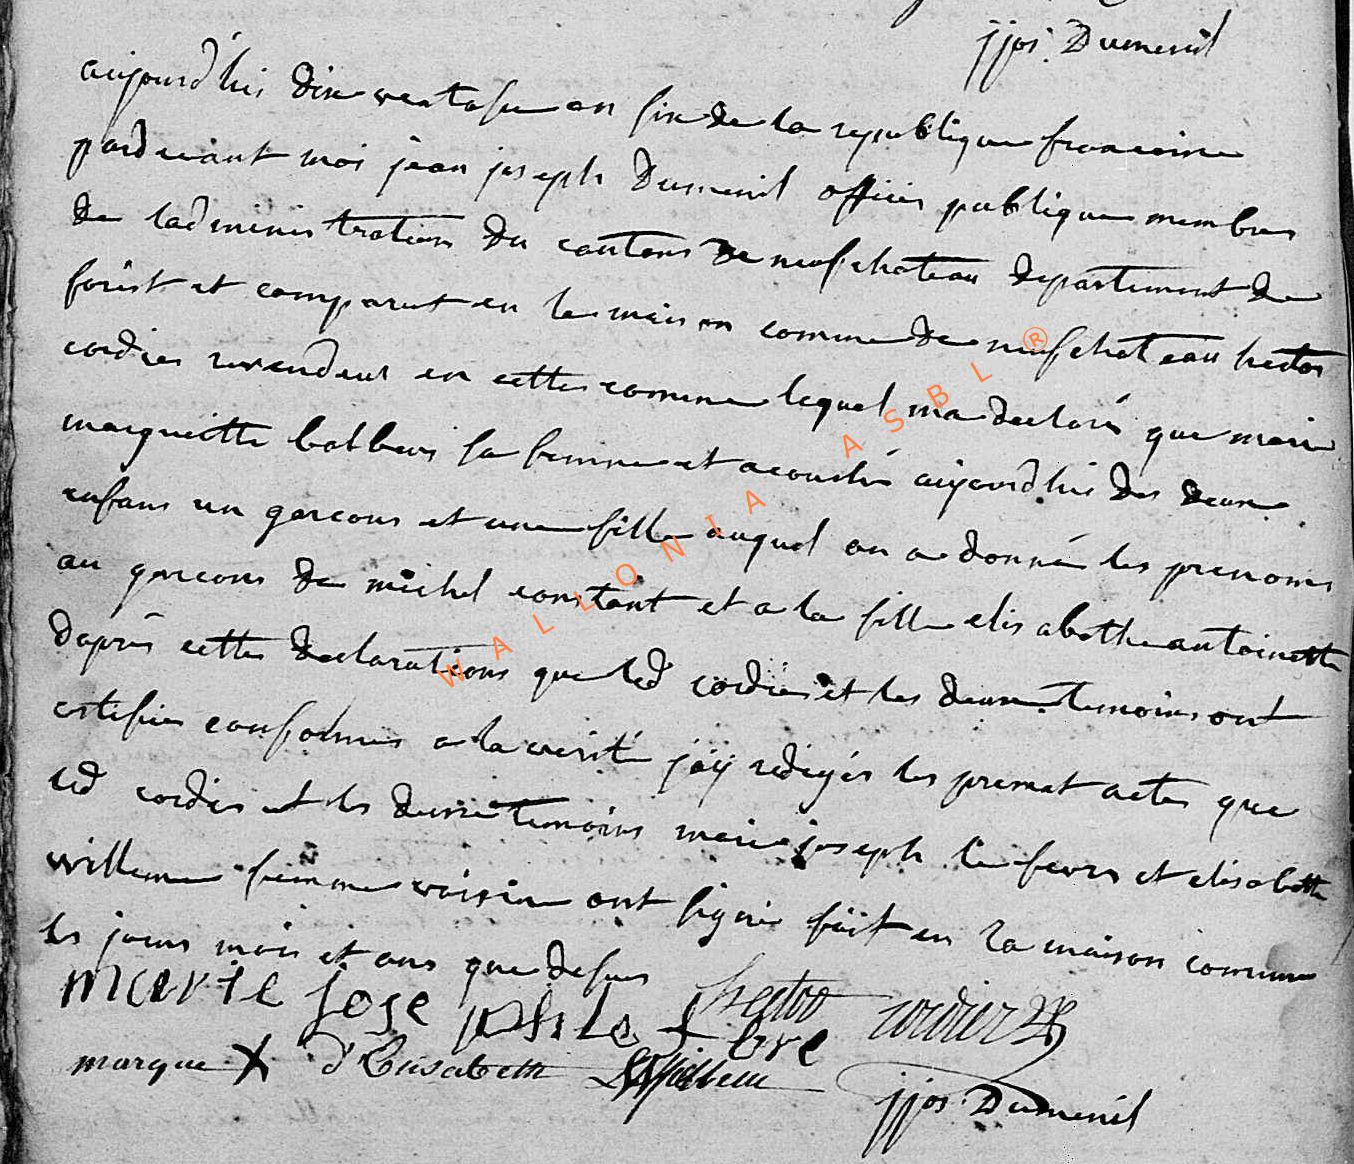 jjos. Dumenil
aujourd'hui dix ventosse an six de la republique francoise
pardevant moi jean joseph Dumenil officier publique membres
de ladministrations du cantons de neufchateau departement de
forest et comparut en la maison commune de neufchateau hector
cordier revendeur en cette comune lequel ma declarés que marie
margueritte bobbeus sa femme et acouché aujourd'hui des deux
enfans un garcons et une fille auquel on a donné les prenoms
au garcons de michel constant et a la fille elisabethe antoinette
daprés cette declarations que led cordier et les deux temoins ont
certifier conformes a la verité jaÿ redigés les present actes que
led cordier et les deux temoins marie joseph le fevre et elisabette
willeme femme voisine ont signé fait en la maison comune
les jours mois et ans que desus
marie joseph le febvre hector cordier
marque X d'Elisabeth Willeme
jjos. Dumenil
WALLONIA ASBL ®